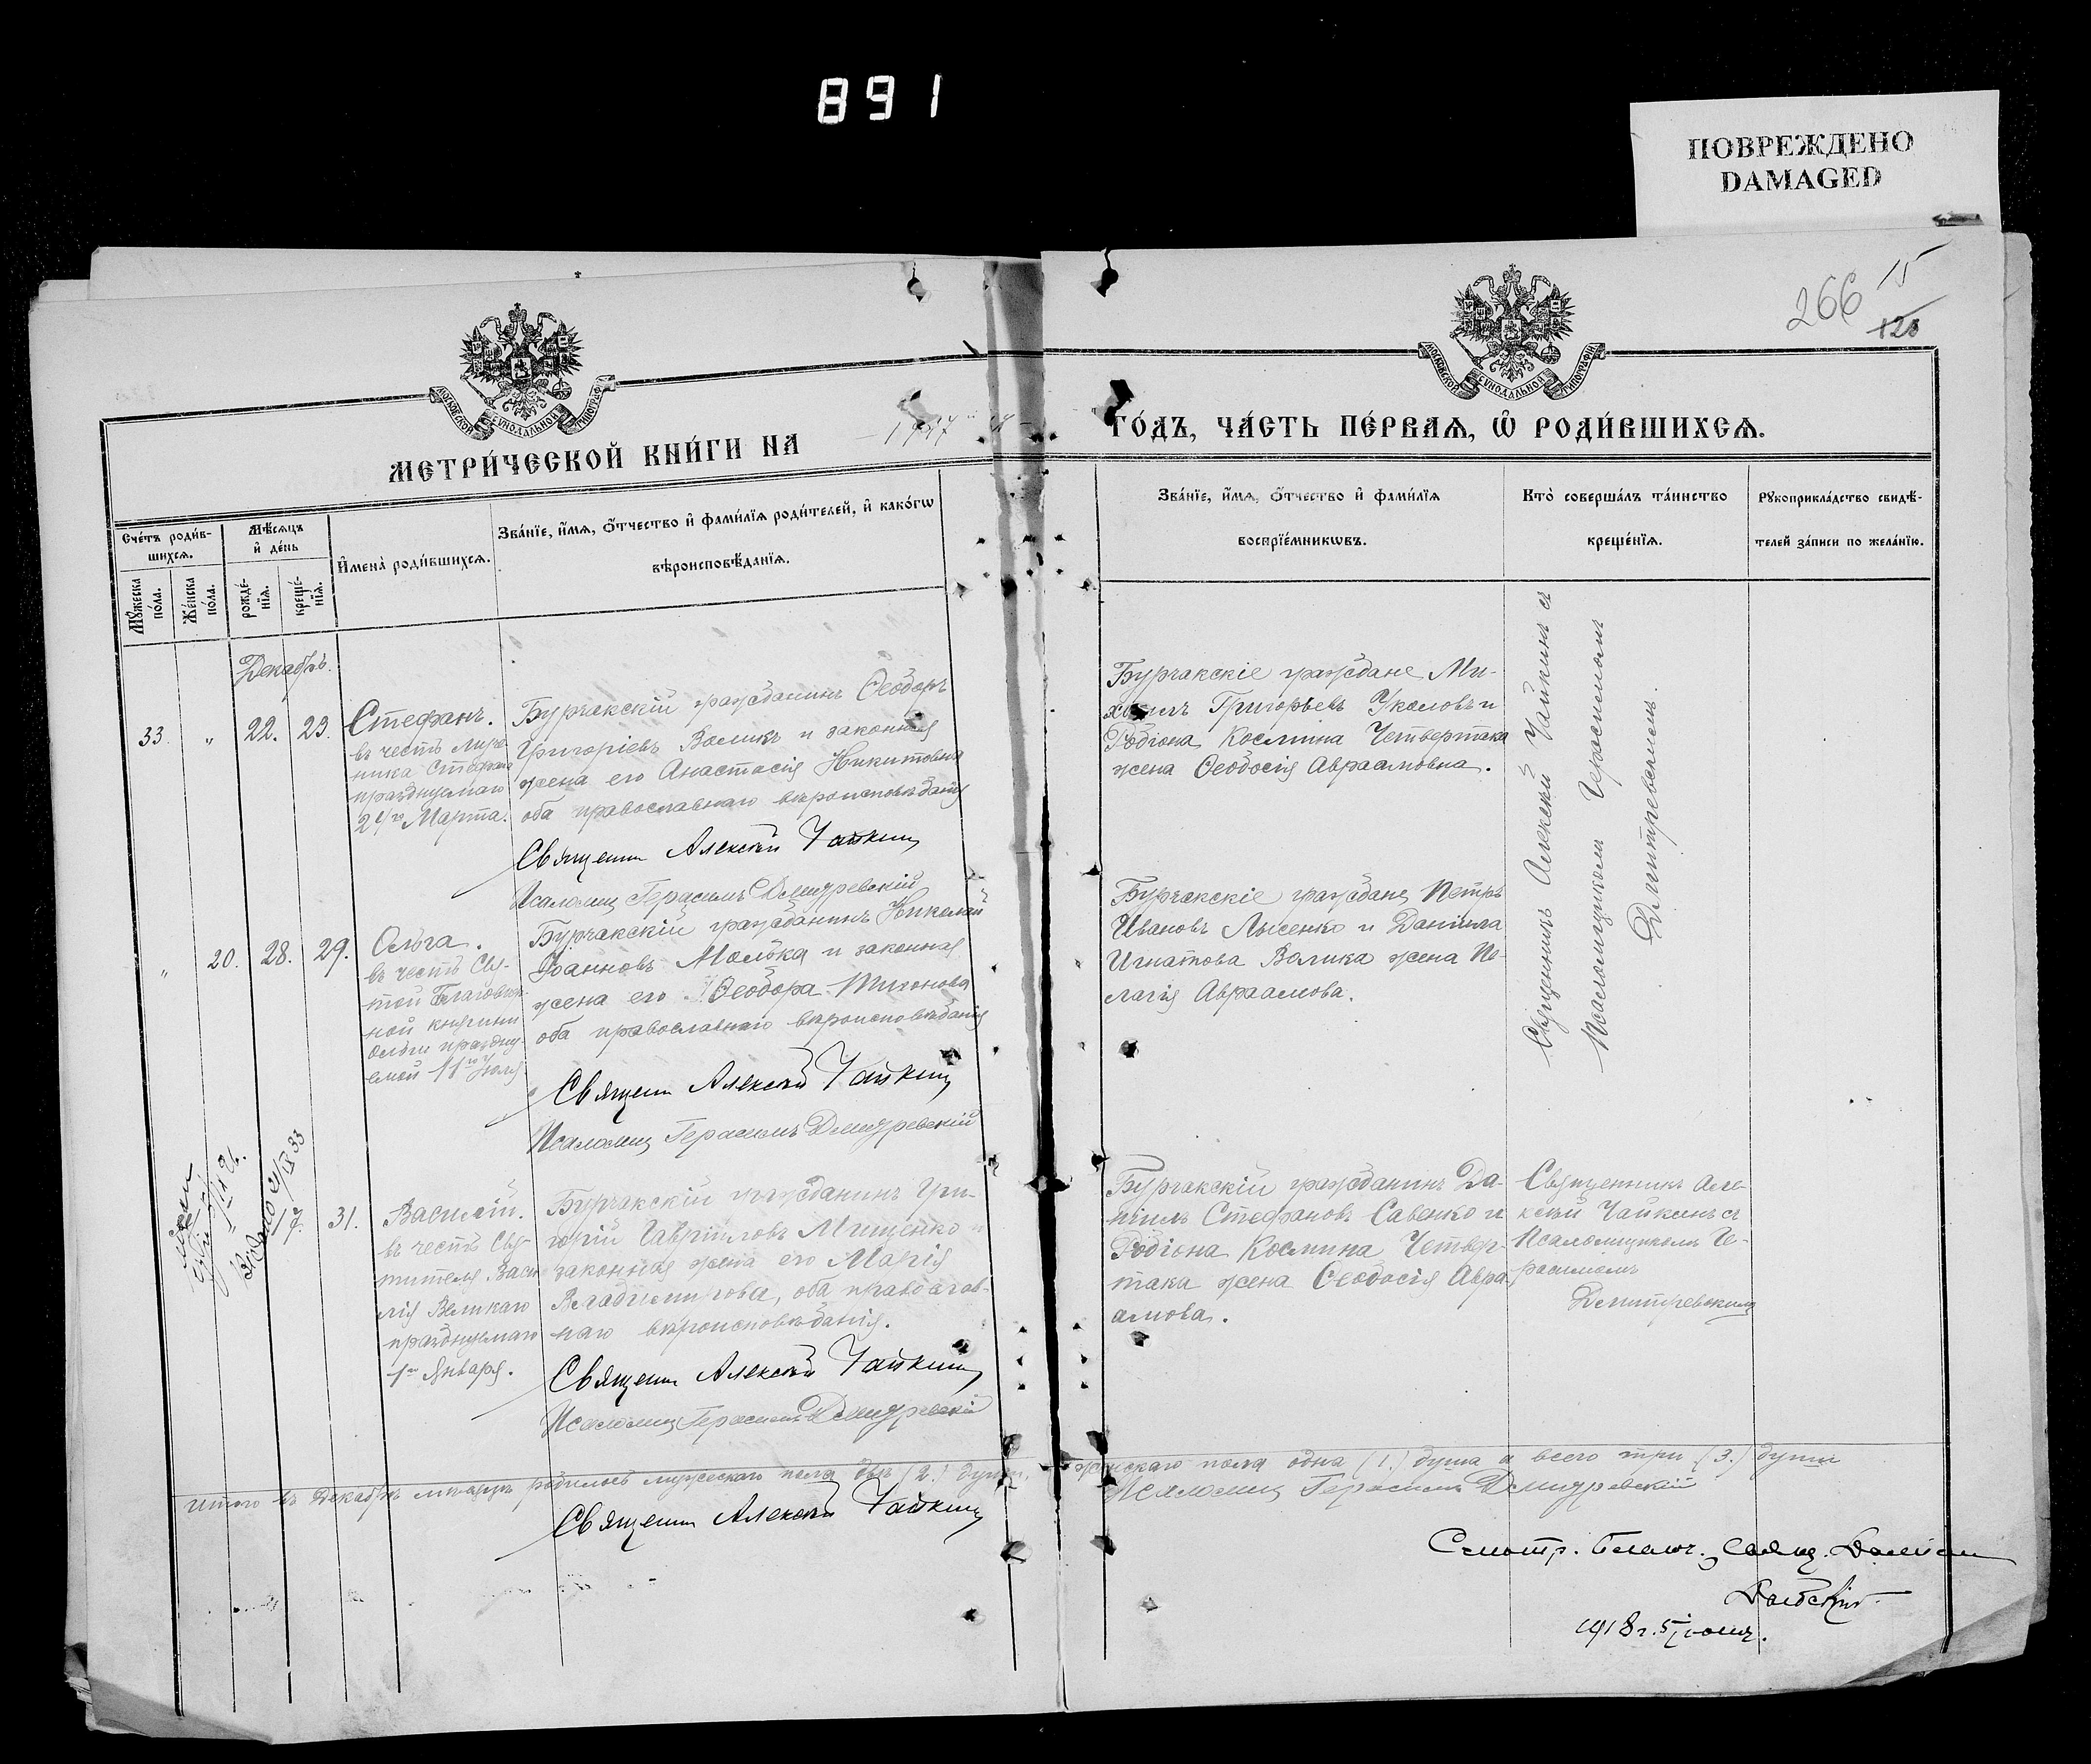 891
ПОВРЕЖДЕНО
DAMAGED
266
15
128
МОСКОВСКОЙ СѴНОДАЛЬНОЙ ТИПОГРАФІИ
МОСКОВСКОЙ СѴНОДАЛЬНОЙ ТИПОГРАФІИ
МЕТРИ́ЧЕСКОЙ КНИ́ГИ НА 1917 й
ГО́ДЪ, ЧА́СТЬ ПЕ́РВАЯ, Ѽ РОДИ́ВШИХСЯ.
Сче́тъ роди́в-
шихся.
Мѣ́сяцъ
и҆ де́нь
И҆мена̀ роди́вшихся.
Зва́нїе, и҆́мя, ѻ҆́тчество и҆ фами́лїя роди́телей, и҆ како́гѡ
вѣроисповѣ́данїя.
Мꙋ́жеска
по́ла.
Же́нска
по́ла.
рожде́-
нїя.
креще́-
нїя.
Зва́нїе, и҆́мя, ѻ҆́тчество и҆ фами́лїя
воспрїе́мникѡвъ.
Кто̀ соверша́лъ та́инство
креще́нїя.
Рꙋкоприкла́дство свидѣ́-
телей за́писи по жела́нїю.
Декабрь.
33. „ 22. 23.
Стефанъ.
въ честь муче-
ника Стефана
празднуемаго
Марта.
Бурчакскій гражданинъ Ѳеодоръ
Григоріевъ Воликъ и законная
жена его Анастасія Никитовна
оба православнаго вѣроисповѣданія
Священ Алексѣй Чайкин
Псаломщ Герасимъ Дмитревскій
Бурчакскіе граждане Ми-
хаилъ Григорьевъ Укаловъ и
Родіона Космина Четвертака
жена Ѳеодосія Авраамовна.
Священникъ Алексѣй Чайкинъ съ
Псаломщикомъ Герасимомъ
Дмитревскимъ.
„ 20. 28. 29.
Ольга.
въ честь Свя-
той Благовѣр-
ной княгини
Ольги празднуе-
мой 11го Іюля
Бурчакскій гражданинъ Николай
Іоанновъ Молока и законная
жена его Ѳеодора Тихонова
оба православнаго вѣроисповѣданія
Священ Алексѣй Чайкин
Псаломщ Герасимъ Дмитревскій
Бурчакскіе граждане Петръ
Ивановъ Лысенко и Даніила
Игнатова Волика жена Пе-
лагія Авраамова.
31.
Василій.
въ честь Свя-
тителя Васи
лія Великаго
празднуемаго
1го Января.
Бурчакскій гражданинъ Гри-
горій Гавріиловъ Мищенко и
законная жена его Марія
Владимирова, оба православ-
наго вѣроисповѣданія.
Священ Алексѣй Чайкин
Псаломщ Герасимъ Дмитревскій
Бурчакскій гражданинъ Да-
ніилъ Стефановъ Савенко и
Родіона Космина Четвер-
така жена Ѳеодосія Авра-
амова.
Священникъ Але-
ксѣй Чайкинъ съ
Псаломщикомъ Ге-
расимомъ
Дмитревскимъ
Итого въ Декабрѣ мѣсяцѣ родилось мужескаго пола двѣ (2.) души, женскаго пола одна (1.) душа а всего три (3.) души
Священ Алексѣй Чайкин
Псаломщ Герасимъ Дмитревскій
Смотр. Благоч. Свящ.
1918 г. 5 іюня.